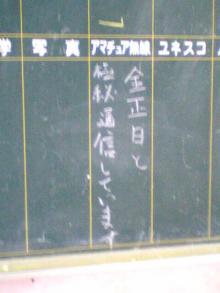 学 写 真
アマチュア無線
ユネスコ
金正日と
極秘通信しています